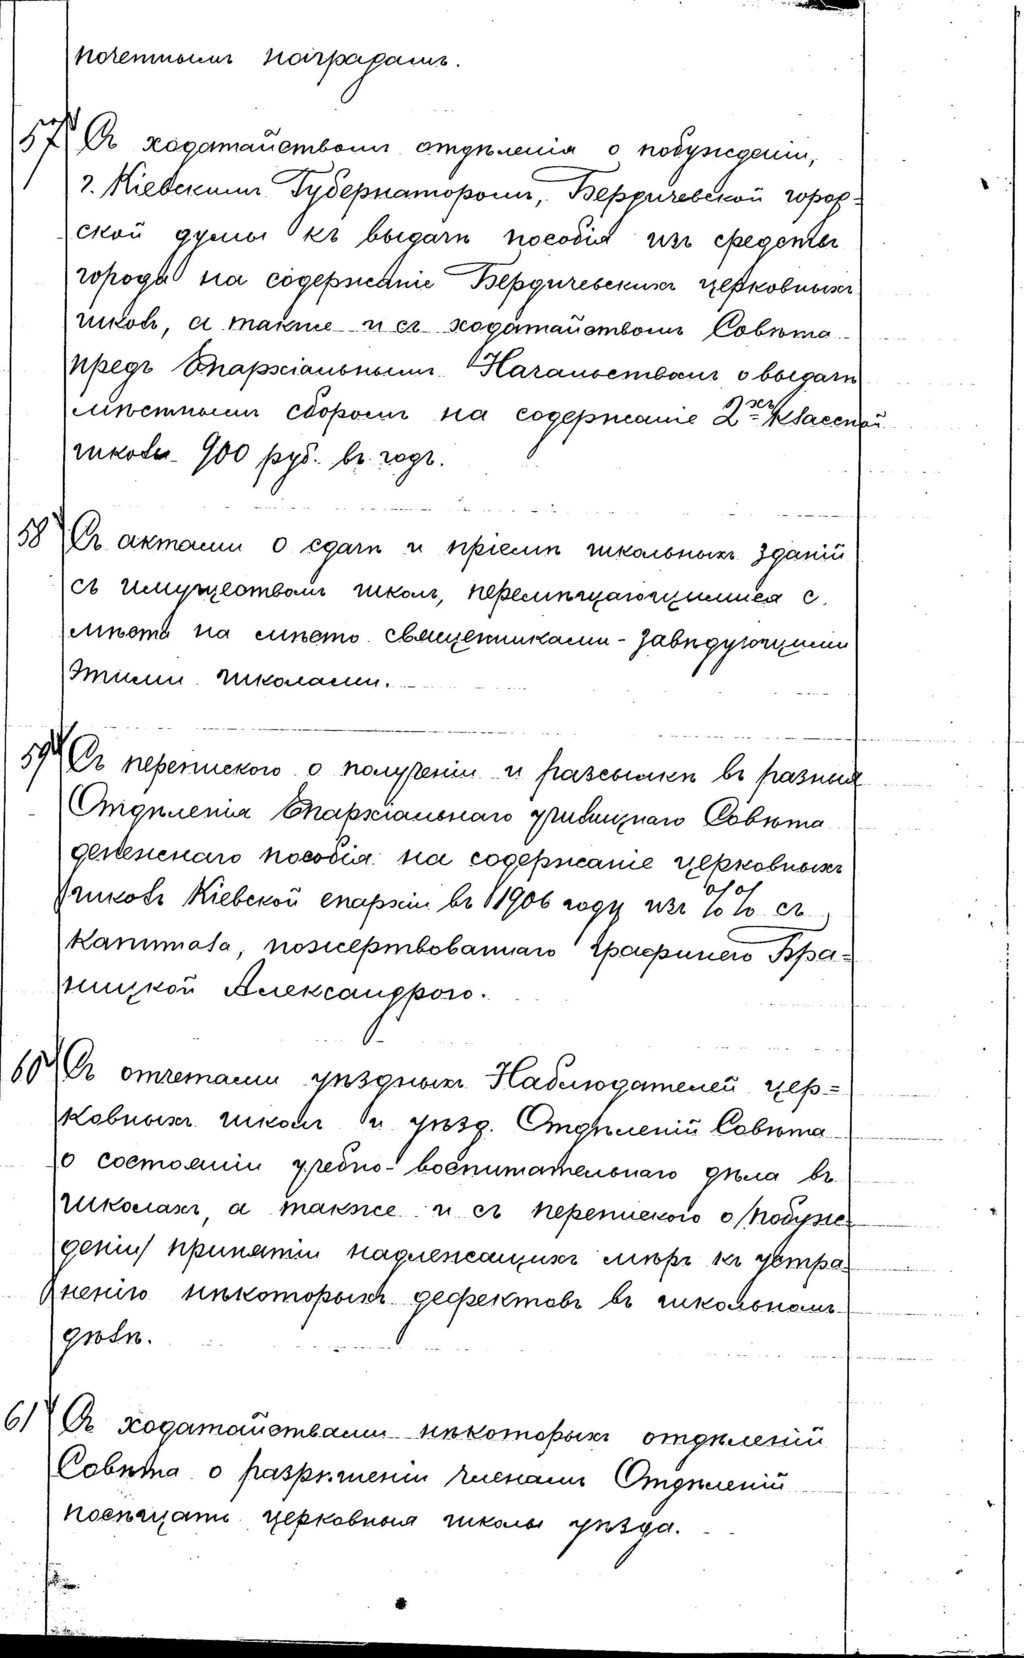 почетнымъ наградамъ.
57 Съ ходатайствомъ отдѣленія о побужденіи,
г. Кіевскимъ Губернаторомъ, Бердичевской город-
ской думы къ выдачѣ пособія изъ средствъ
города на содержаніе Бердичевскихъ церковныхъ
школъ, а также и съ ходатайствомъ Совѣта
предъ Епархіальнымъ Начальствомъ о выдачѣ
мѣстнымъ сборомъ на содержаніе 2хъ классной
школы 900 руб. въ годъ.
58 Съ актами о сдачѣ и пріемѣ школьныхъ зданій
съ имуществомъ школъ, перемѣщающимися с.
мѣста на мѣсто священниками - завѣдующими
этими школами.
59 Съ перепискою о полученіи и разсылкѣ въ разныя
Отдѣленія Епархіальнаго училищнаго Совѣта
денежнаго пособія на содержаніе церковныхъ
школъ Кіевской епархіи въ 1906 году изъ %% съ
капитала, пожертвованнаго графинею Бра-
ницкой Александрою.
60 Съ отчетами уѣздныхъ Наблюдателей цер-
ковныхъ школъ и уѣзд. Отдѣленій Совѣта
о состояніи учебно-воспитательнаго дѣла въ
школахъ, а также и съ перепискою о /побуж-
деніи/ принятіи надлежащихъ мѣръ къ устра-
ненію нѣкоторыхъ дефектовъ въ школьномъ
дѣлѣ.
61 Съ ходатайствами нѣкоторыхъ отдѣленій
Совѣта о разрѣшеніи членамъ Отдѣленій
посѣщать церковныя школы уѣзда.